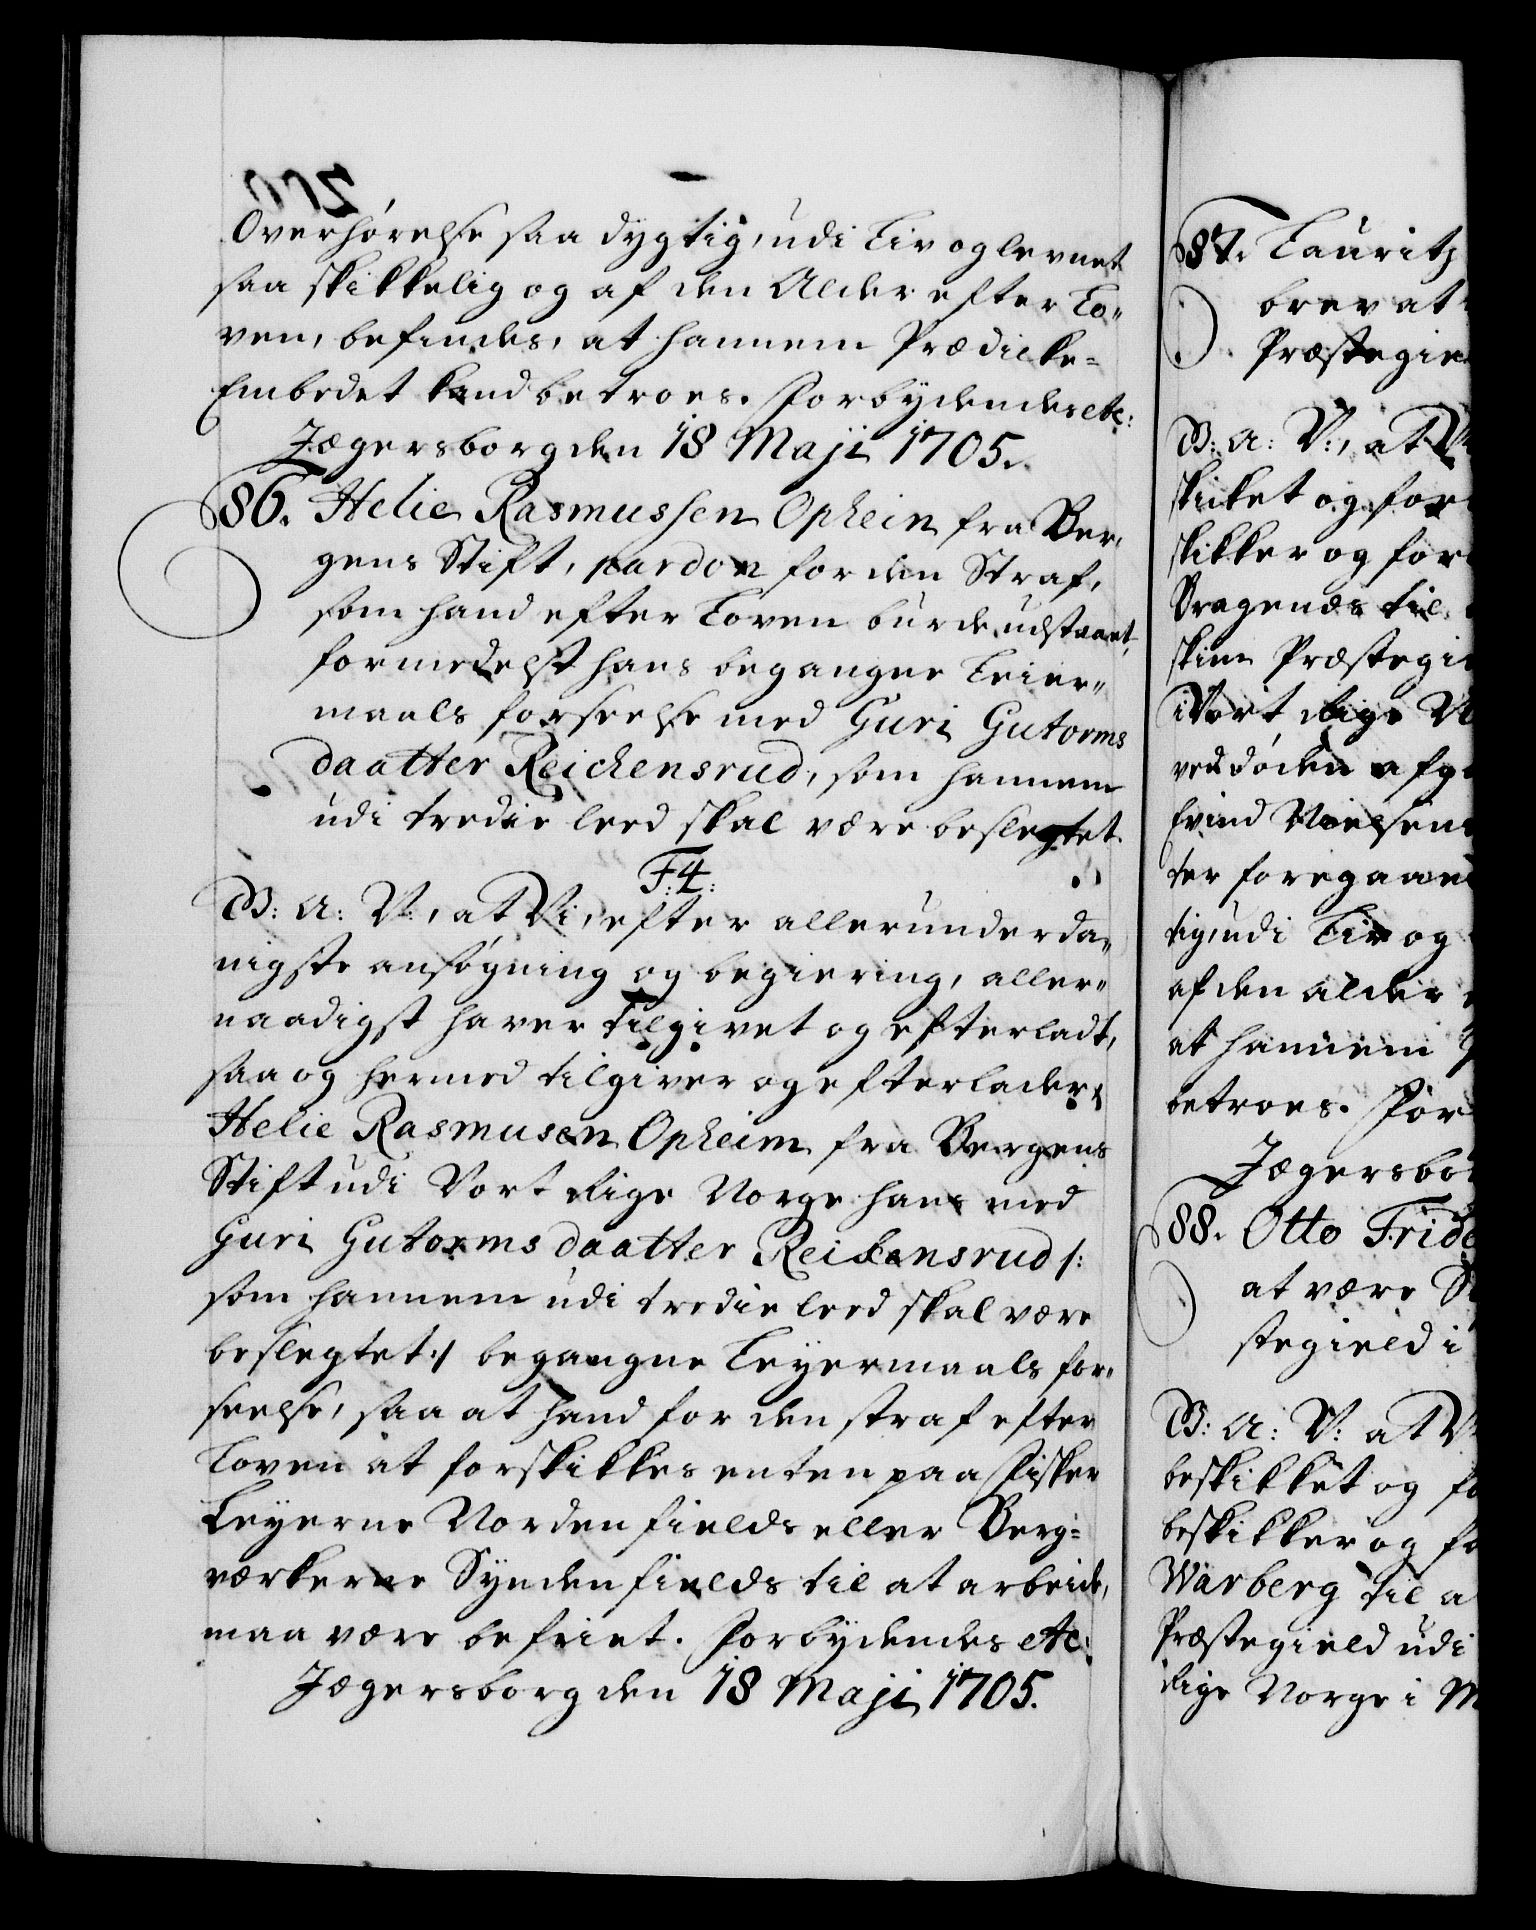 Overhørelse saa dygtig, udi Liv og levnet
saa skikkelig og af den Alder efter Lo„
ven, befindes, at hannem Prædicke=
Embedet kand betroes. Forbydendes etc:
Jægersborg den 18 Maji 1705.
86. Helie Rasmussen Ophein fra Ber„
gens Stift, pardon for den Straf,
som hand efter Loven burde udstaaet,
formedelst hans begangne Leier„
maals forseelse med Guri Gutorms
daatter Reichensrud, som hannem
udi tredie leed skal være beslegtet.
F:4:
G: A: V:, at Vi, efter allerunderda„
nigste ansøgning og begiering, aller„
naadigst haver tilgivet og efterladt,
saa og hermed tilgiver og efterlader,
Helie Rasmusen Opheim fra Bergens
Stift udi Vort Rige Norge hans med
Guri Gutormsdaatter Reikensrud /:
som hannem udi tredie leed skal være
beslegtet:/ begangne Leyermaals for„
seelse, saa at hand for den straf efter
Loven at forskikkes enten paa Fisker
Leyerne Nordenfields eller Berg=
værkerne Syndenfields til at arbeide,
maa være befriet. Forbydendes etc:
Jægersborg den 18 Maji 1705.
87. Lauritz
brev at
Præstegie
G: A: V:, at V
skicket og for
skikker og for
Bragenæs til
skim Præstegi
i Vort Rige N
ved døden afg
Evind Nielsen
ter foregaaen
tig, udi Liv og
af den alder
at hannem
betroes. For
Jægersbor
88. Otto Fride
at være S
stegield i
G: A: V: at V
beskikket og fo
beskikker og fo
Warberg til a
Præstegield udi
Rige Norge i M